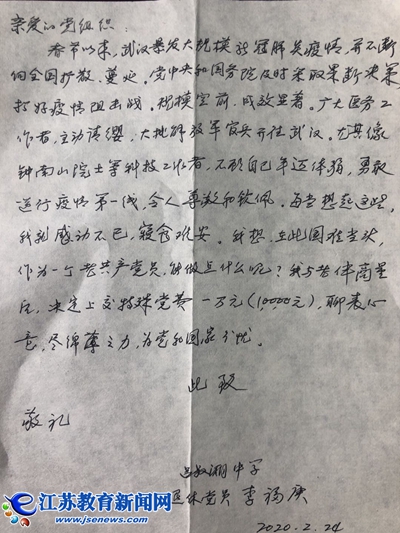 亲爱的党组织:
春节以来,武汉暴发大规模新冠肺炎疫情,并不断
向全国扩散、蔓延。党中央和国务院及时采取果断决策
打好疫情阻击战。规模空前,成效显著。广大医务工
作者,主动请缨,大批解放军官兵开往武汉。尤其像
钟南山院士等科技工作者,不顾自己年迈体弱,勇敢
逆行疫情第一线,令人尊敬和钦佩。每当想起这些,
我就感动不已,寝食难安。我想,在此国难当头,
作为一个老共产党员,能做点什么呢?我与老伴商量
后,决定上交特殊党费一万元(10,000元),聊表心
意,尽绵薄之力,为党和国家分忧。
此致
敬礼
中学
退休党员 李福庚
2020.2.24
江苏教育新闻网
www.jsenews.com